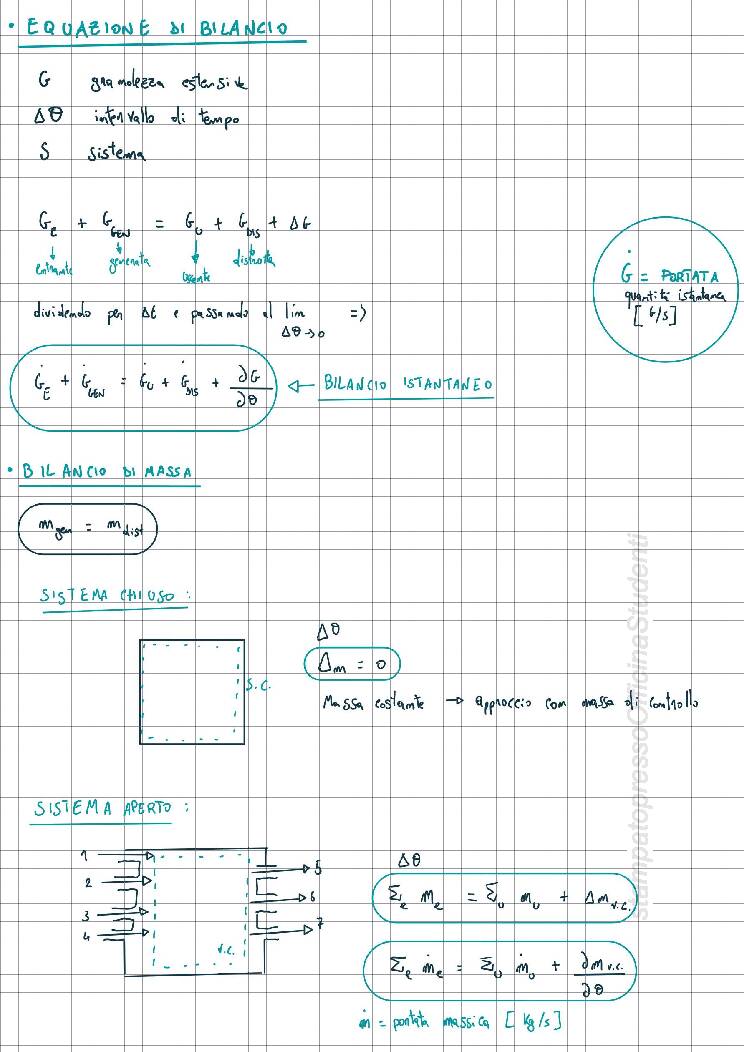 • EQUAZIONE DI BILANCIO
G grandezza estensiva
Δθ intervallo di tempo
S sistema
G_E + G_GEN = G_U + G_DIS + ΔG
entrante generata uscente distrutta
Ġ = PORTATA
quantità istantanea
[G/s]
dividendo per Δθ e passando al lim Δθ→0 =>
Ġ_E + Ġ_GEN = Ġ_U + Ġ_DIS + ∂G/∂θ ← BILANCIO ISTANTANEO
• BILANCIO DI MASSA
m_gen = m_dist
SISTEMA CHIUSO:
Δθ
Δm = 0
S.C.
Massa costante → approccio con massa di controllo
SISTEMA APERTO:
1
2
3
4
5
6
7
V.C.
Δθ
Σ_e m_e = Σ_u m_u + Δm_v.c.
Σ_e ṁ_e = Σ_u ṁ_u + ∂m_v.c./∂θ
ṁ = portata massica [kg/s]
stampatopressoOfficinaStudenti